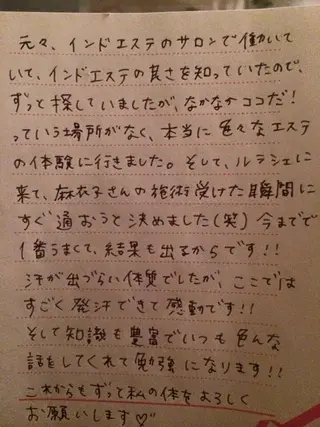 元々、インドエステのサロンで働いて
いて、インドエステの良さを知っていたので、
ずっと探していましたが、なかなかココだ!
っていう場所がなく、本当に色々なエステ
の体験に行きました。そして、ルラシェに
来て、麻衣子さんの施術受けた瞬間に
すぐ通おうと決めました(笑)今までで
1番うまくて、結果も出るからです!!
汗が出づらい体質でしたが、ここでは
すごく発汗できて感動です!!
そして知識も豊富でいつも色んな
話をしてくれて勉強になります!!
これからもずって私の体をよろしく
お願いします♡